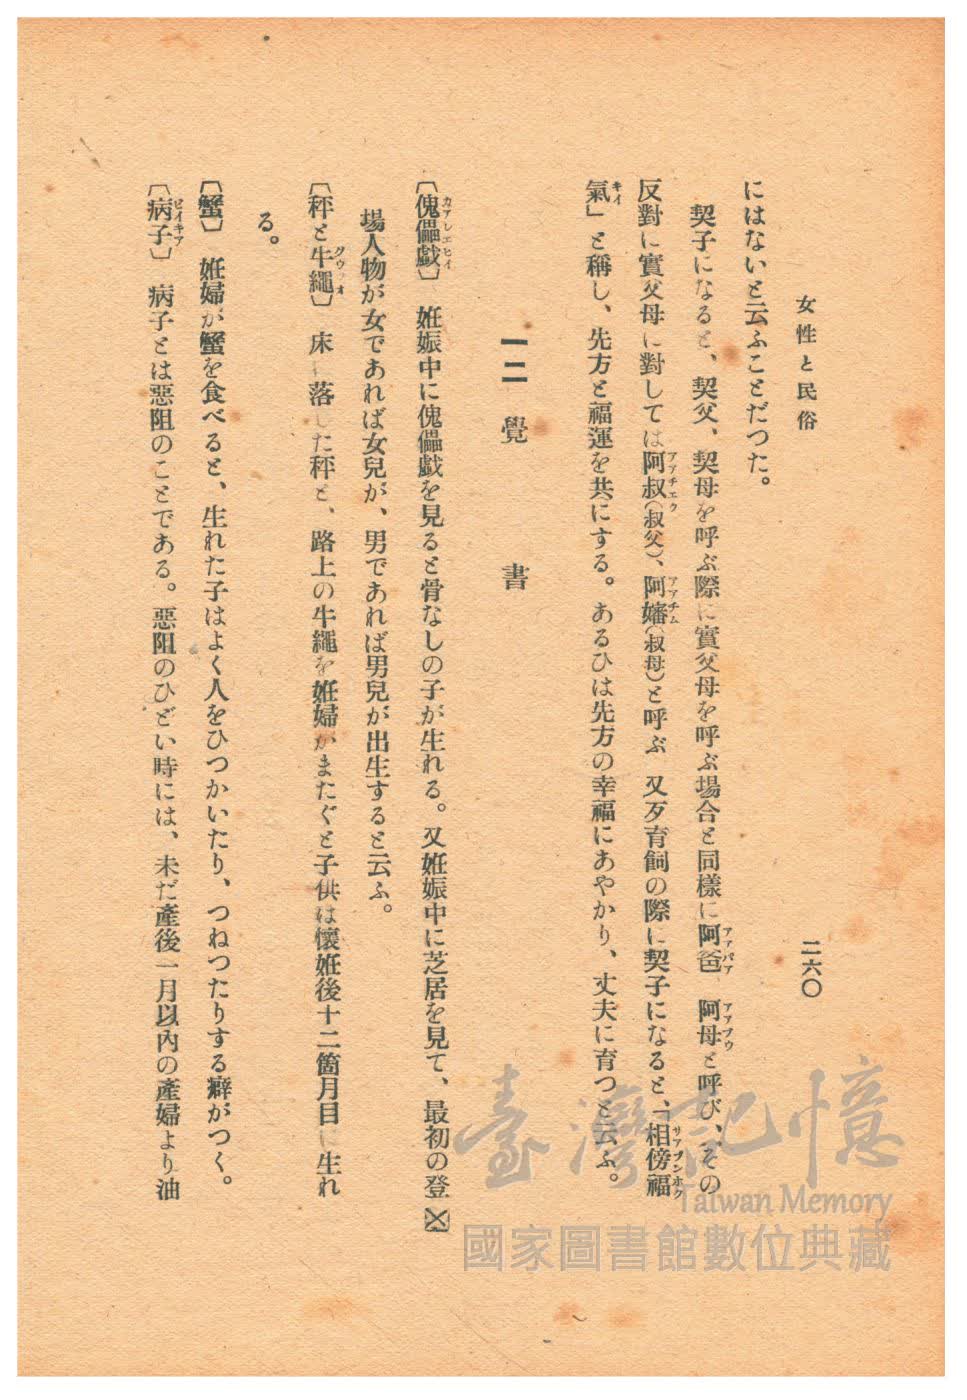 女性と民俗
二六〇
にはないと云ふことだつた。
契子になると、契父、契母を呼ぶ際に實父母を呼ぶ場合と同樣に阿爸、阿母と呼び、その
反對に實父母に對しては阿叔(叔父)、阿嬸(叔母)と呼ぶ 又歹育飼の際に契子になると、「相傍福
氣」と稱し、先方と福運を共にする。あるひは先方の幸福にあやかり、丈夫に育つと云ふ。
一二 覺書
〔傀儡戯〕 姙娠中に傀儡戯を見ると骨なしの子が生れる。又姙娠中に芝居を見て、最初の登
場人物が女であれば女兒が、男であれば男兒が出生すると云ふ。
〔秤と牛繩〕 床に落した秤と、路上の牛繩を姙婦がまたぐと子供は懷姙後十二箇月目に生れ
る。
〔蟹〕 姙婦が蟹を食べると、生れた子はよく人をひつかいたり、つねつたりする癖がつく。
〔病子〕 病子とは惡阻のことである。惡阻のひどい時には、未だ產後一月以內の產婦より油
臺灣記憶
Taiwan Memory
國家圖書館數位典藏